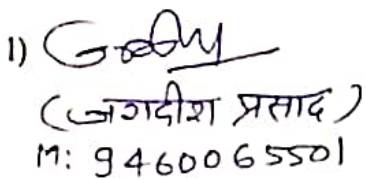 1)
(जगदीश प्रसाद)
M: 9460065501